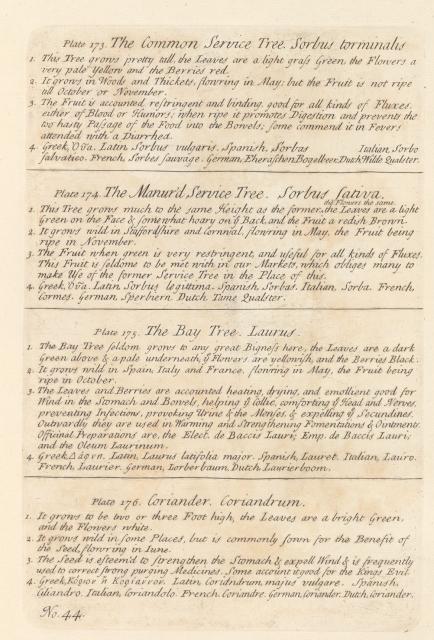 Plate 173. The Common Service Tree. Sorbus torminalis
1. This Tree grows pretty tall, the Leaves are a light graſs Green, the Flowers a
very pale Yellow and the Berries red.
2. It grows in Woods and Thickets, flowring in May; but the Fruit is not ripe
till October or November.
3. The Fruit is accounted restringent and binding, good for all kinds of Fluxes,
either of Blood or Humors; when ripe it promotes Digestion and prevents the
too hasty Paſsage of the Food into the Bowels; some commend it in Fevers
attended with a Diarrhea.
4. Greek, Latin, Sorbus vulgaris. Spanish, Sorbas Italian, Sorbo
salvatico. French, Sorbes sauvage. German, Dutch, Wilde Qualster.
Plate 174. The Manur'd Service Tree. Sorbus sativa.
the Flowers the same.
1. This Tree grows much to the same Height as the former, the Leaves are a light
Green on the Face & somewhat hoary on ye Back and the Fruit a redish Brown.
2. It grows wild in Staffordshire and Cornwal, flowring in May, the Fruit being
ripe in November.
3. The Fruit when green is very restringent, and useful for all kinds of Fluxes.
This Fruit is seldome to be met with in our Markets, which obliges many to
make Use of the former Service Tree in the Place of this.
4. Greek, Latin, Sorbus legitima. Spanish, Sorbas. Italian, Sorba. French,
Cormes. German, Sperbiern. Dutch, Tame Qualster.
Plate 175. The Bay Tree. Laurus.
1. The Bay Tree seldom grows to any great Bigneſs here, the Leaves are a dark
Green above & a pale underneath, ye Flowers are yellowish, and the Berries Black.
2. It grows wild in Spain, Italy and France, flowring in May, the Fruit being
ripe in October.
3. The Leaves and Berries are accounted heating, drying, and emollient good for
Wind in the Stomach and Bowels, helping ye Colic, comforting ye Head and Nerves,
preventing Infections, provoking Urine & the Menses, & expelling ye Secundines.
Outwardly they are used in Warming and Strengthening Fomentations & Ointments.
Officinal Preparations are, the Elect. de Baccis Lauri; Emp. de Baccis Lauri;
and the Oleum Laurinum.
4. Greek, Δάφνη. Latin, Laurus latifolia major. Spanish, Lauret. Italian, Lauro.
French, Laurier. German, Lorberbaum. Dutch, Laurierboom.
Plate 176. Coriander. Coriandrum.
1. It grows to be two or three Foot high, the Leaves are a bright Green,
and the Flowers white.
2. It grows wild in some Places, but is commonly sown for the Benefit of
the Seed, flowring in Iune.
3. The Seed is esteem'd to strengthen the Stomach & expell Wind & is frequently
used to correct strong purging Medicines. Some account it good for the Kings Evil.
4. Greek, Κόριον ἢ Κορίαννον. Latin, Coriandrum majus vulgare. Spanish,
Ciliandro. Italian, Coriandolo. French, Coriandre. German, Coriander. Dutch, Coriander.
No. 44.